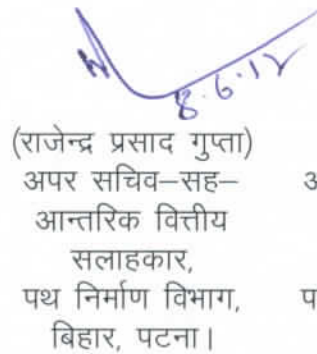 8.6.12
(राजेन्द्र प्रसाद गुप्ता)
अपर सचिव–सह–
आन्तरिक वित्तीय
सलाहकार,
पथ निर्माण विभाग,
बिहार, पटना।